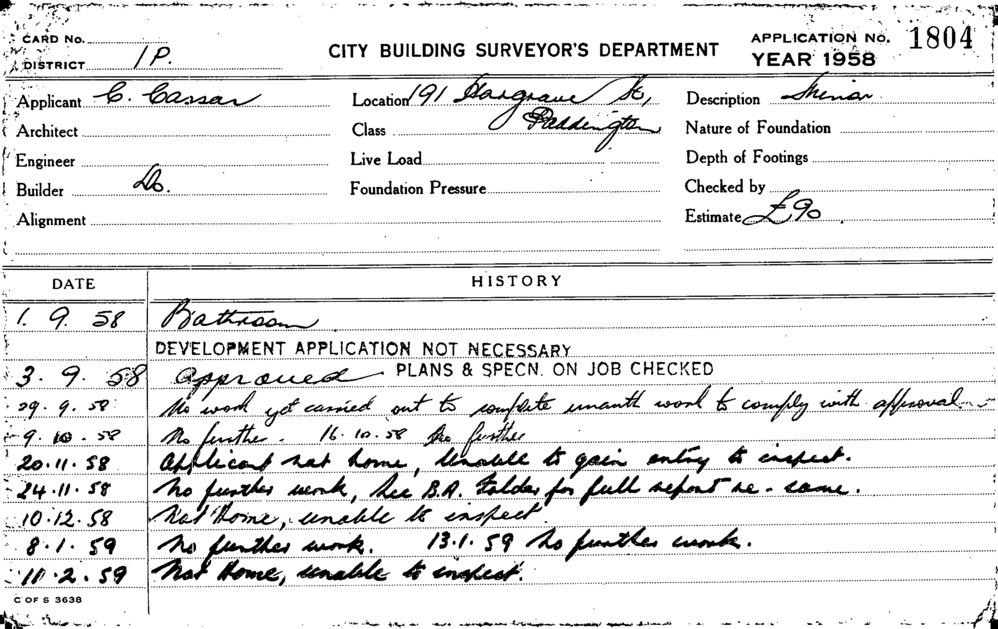 CARD No.
DISTRICT 1P.
CITY BUILDING SURVEYOR'S DEPARTMENT
APPLICATION No. 1804
YEAR 1958
Applicant C. Cassar
Location 191 Hargrave St,
Paddington
Description
Architect
Class
Nature of Foundation
Engineer
Live Load
Depth of Footings
Builder Do.
Foundation Pressure
Checked by
Alignment
Estimate £90
DATE HISTORY
1. 9. 58 Bathroom
DEVELOPMENT APPLICATION NOT NECESSARY
3. 9. 58 approved PLANS & SPECN. ON JOB CHECKED
29. 9. 58 No work yet carried out to complete work to comply with approval
9. 10. 58 No further. 16. 10. 58 No further
20. 11. 58 Applicant not home, Unable to gain entry to inspect.
24. 11. 58 No further work, See B.A. Folder for full report re-same.
10. 12. 58 Not Home, unable to inspect
8. 1. 59 No further work. 13. 1. 59 No further work.
11. 2. 59 Not Home, unable to inspect.
C OF S 3638